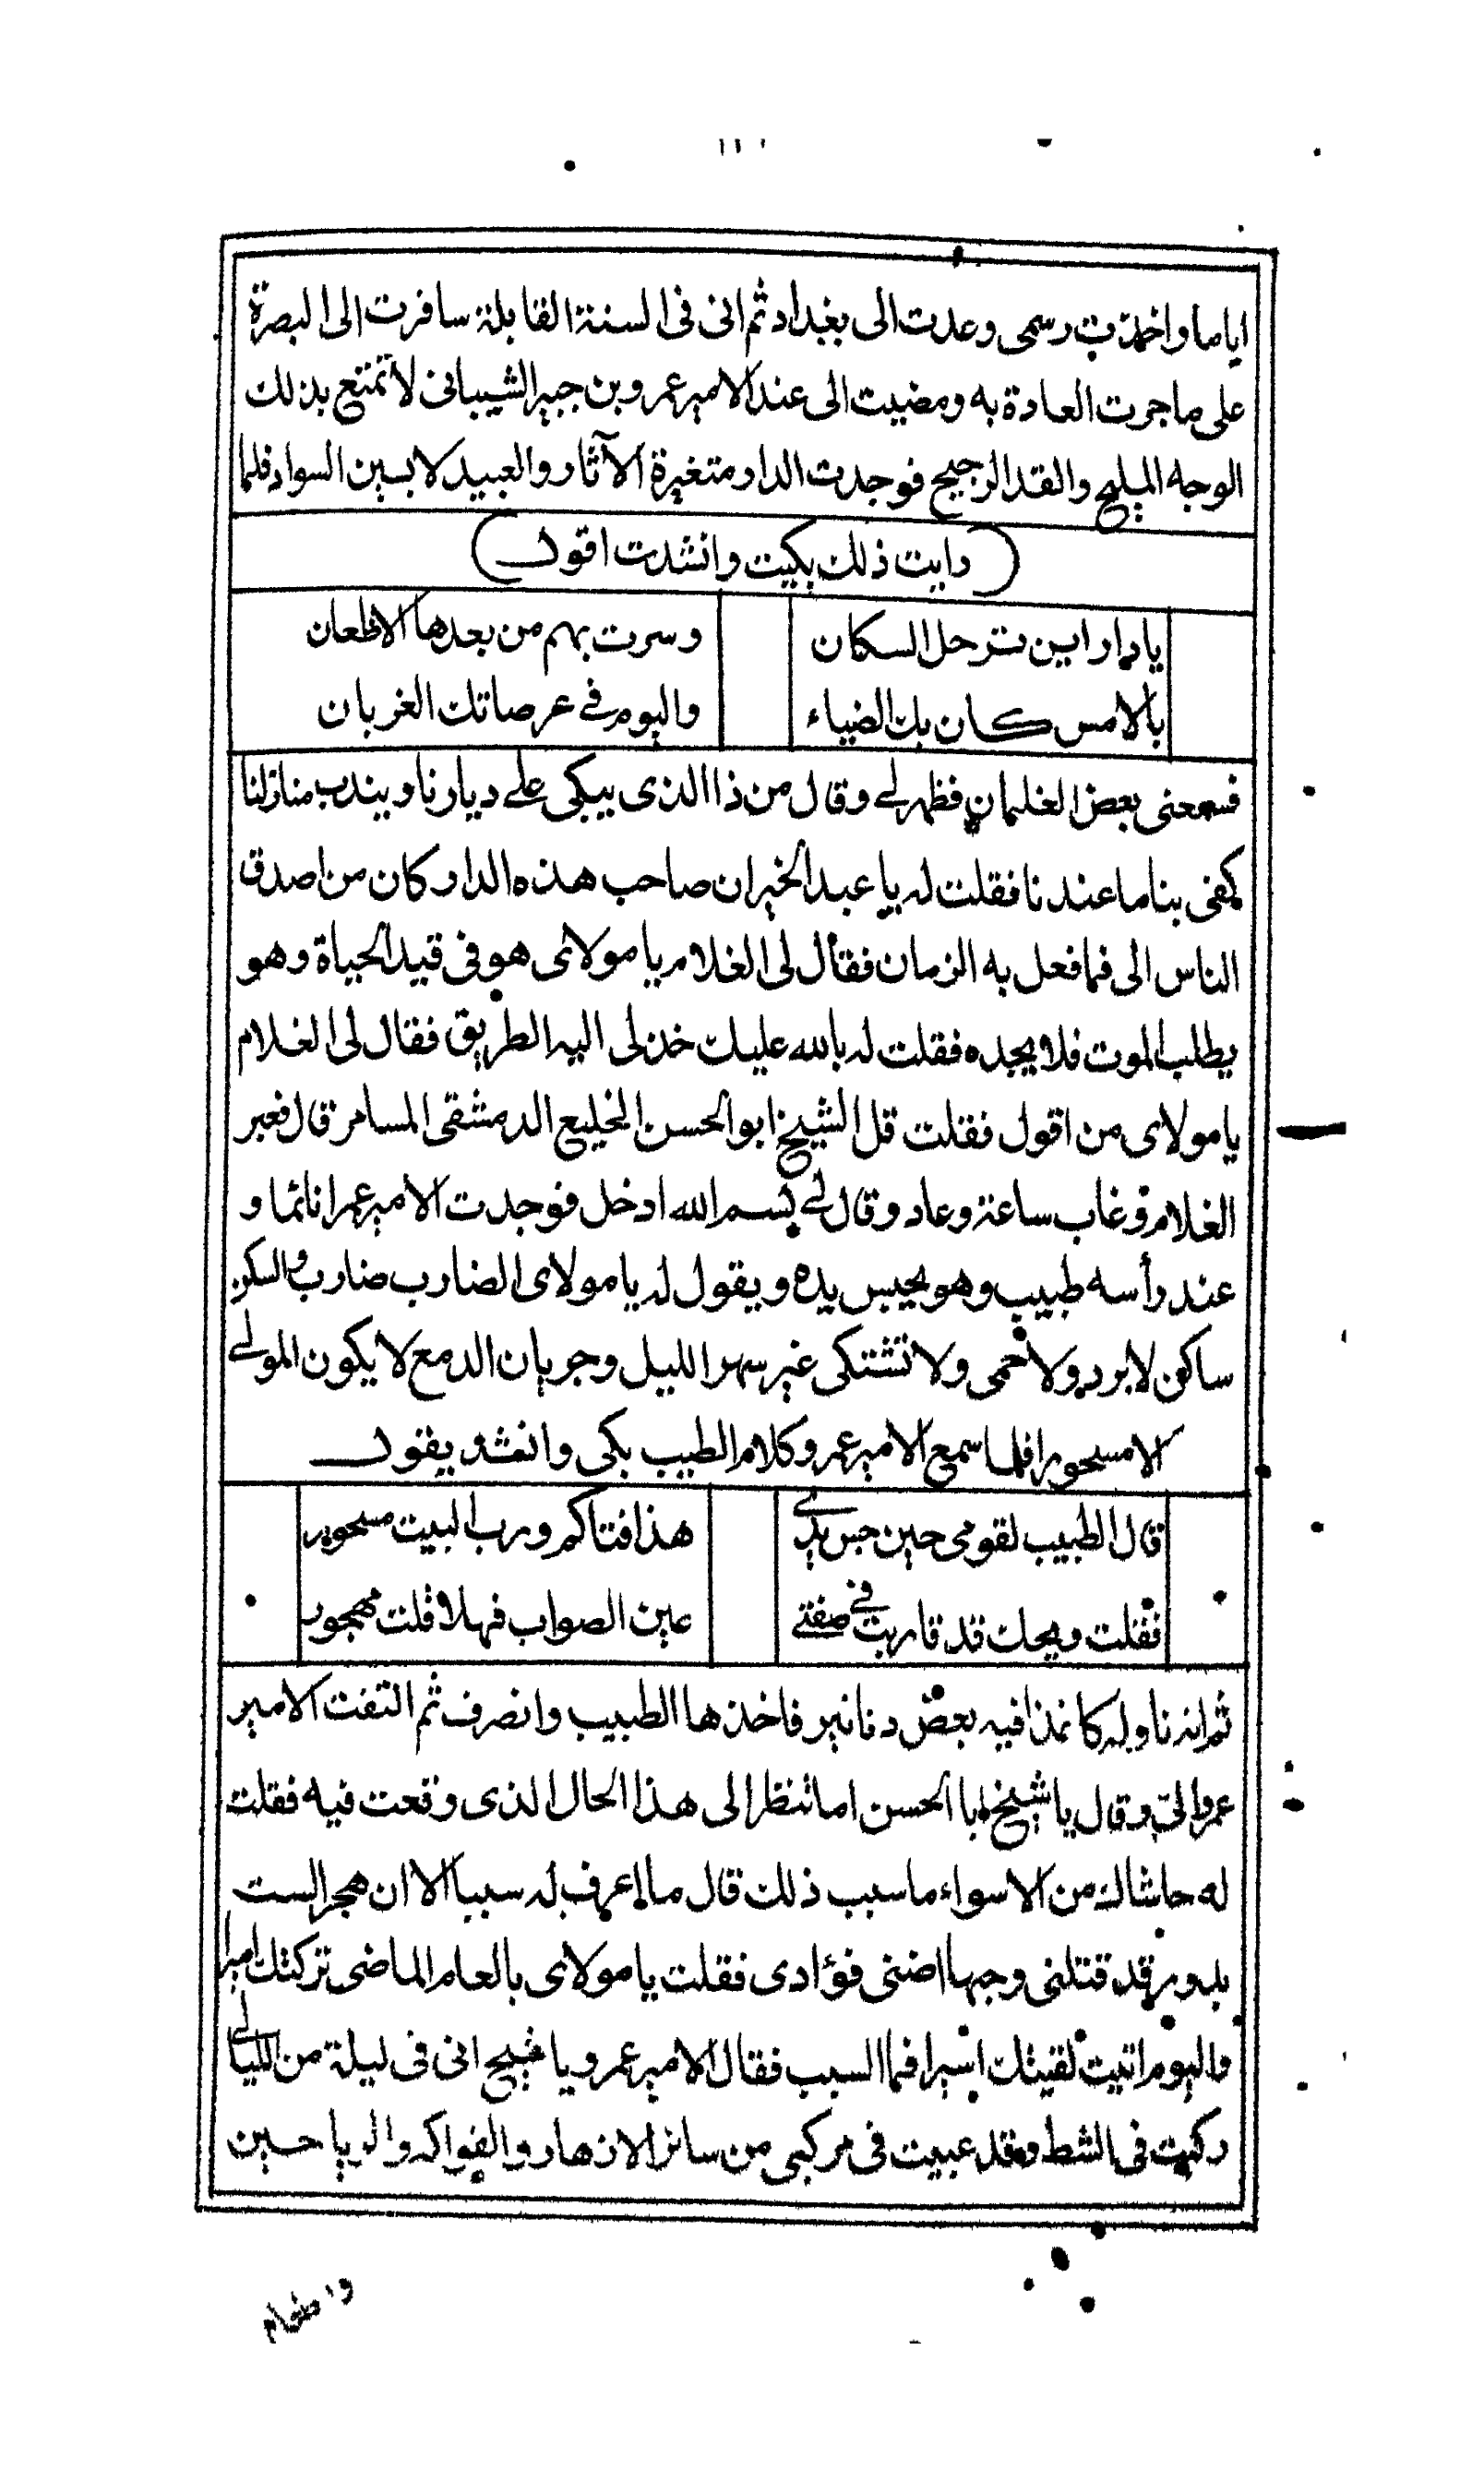 اياما واخذت رسمى وعدت الى بغداد ثم انى فى السنة القابلة سافرت الى البصرة
على ما جرت العادة به ومضيت الى عند الامير عمرو بن جبير الشيبانى لا تمتع بذلك
الوجه المليح والقد الرجيح فوجدت الدار متغيرة الآثار والعبيد لابسين السواد فلما
(رايت ذلك بكيت وانشدت اقول)
يا دار اين ترحل السكان وسرت بهم من بعدها الاظعان
بالامس كان بك الضياء واليوم فى عرصاتك الغربان
فسمعنى بعض الغلمان فظهر لى وقال من ذا الذى يبكى على ديارنا ويندب منازلنا
كفى بنا ما عندنا فقلت له يا عبد الخير ان صاحب هذه الدار كان من اصدق
الناس الى فما فعل به الزمان فقال لى الغلام يا مولاى هو فى قيد الحياة وهو
يطلب الموت فلا يجده فقلت له بالله عليك خذ لى اليه الطريق فقال لى الغلام
يا مولاى من اقول فقلت قل الشيخ ابو الحسن الخليع الدمشقى المسامر قال فعبر
الغلام وغاب ساعة وعاد وقال لى بسم الله ادخل فوجدت الامير عمرا نائما و
عند رأسه طبيب وهو يجبس يده ويقول له يا مولاى الضارب ضارب والساكن
ساكن لا برد ولا حمى ولا تشتكى غير سهر الليل وجريان الدمع لا يكون المولى
الا مسحورا فلما سمع الامير عمرو كلام الطبيب بكى وانشد يقول
قال الطبيب لقومى حين جس يدى هذا فتاكم ورب البيت مسحور
فقلت ويحك قد قاربت فى صفتى عين الصواب فهلا قلت مهجور
ثم انه ناوله كاغذا فيه بعض دنانير فاخذها الطبيب وانصرف ثم التفت الامير
عمرو الىّ وقال يا شيخ ابا الحسن اما تنظر الى هذا الحال الذى وقعت فيه فقلت
له حاشاك من الاسواء ما سبب ذلك قال ما اعرف له سببا الا ان هجر الست
بدور قد قتلنى وجبها اضنى فؤادى فقلت يا مولاى بالعام الماضى تركتك اميرا
واليوم اتيت لقيتك اسيرا فما السبب فقال الامير عمرو يا شيخ انى فى ليلة من الليالى
ركبت فى الشط وقد عبيت فى مركبى من سائر الازهار والفواكه والرياحين
والطعام